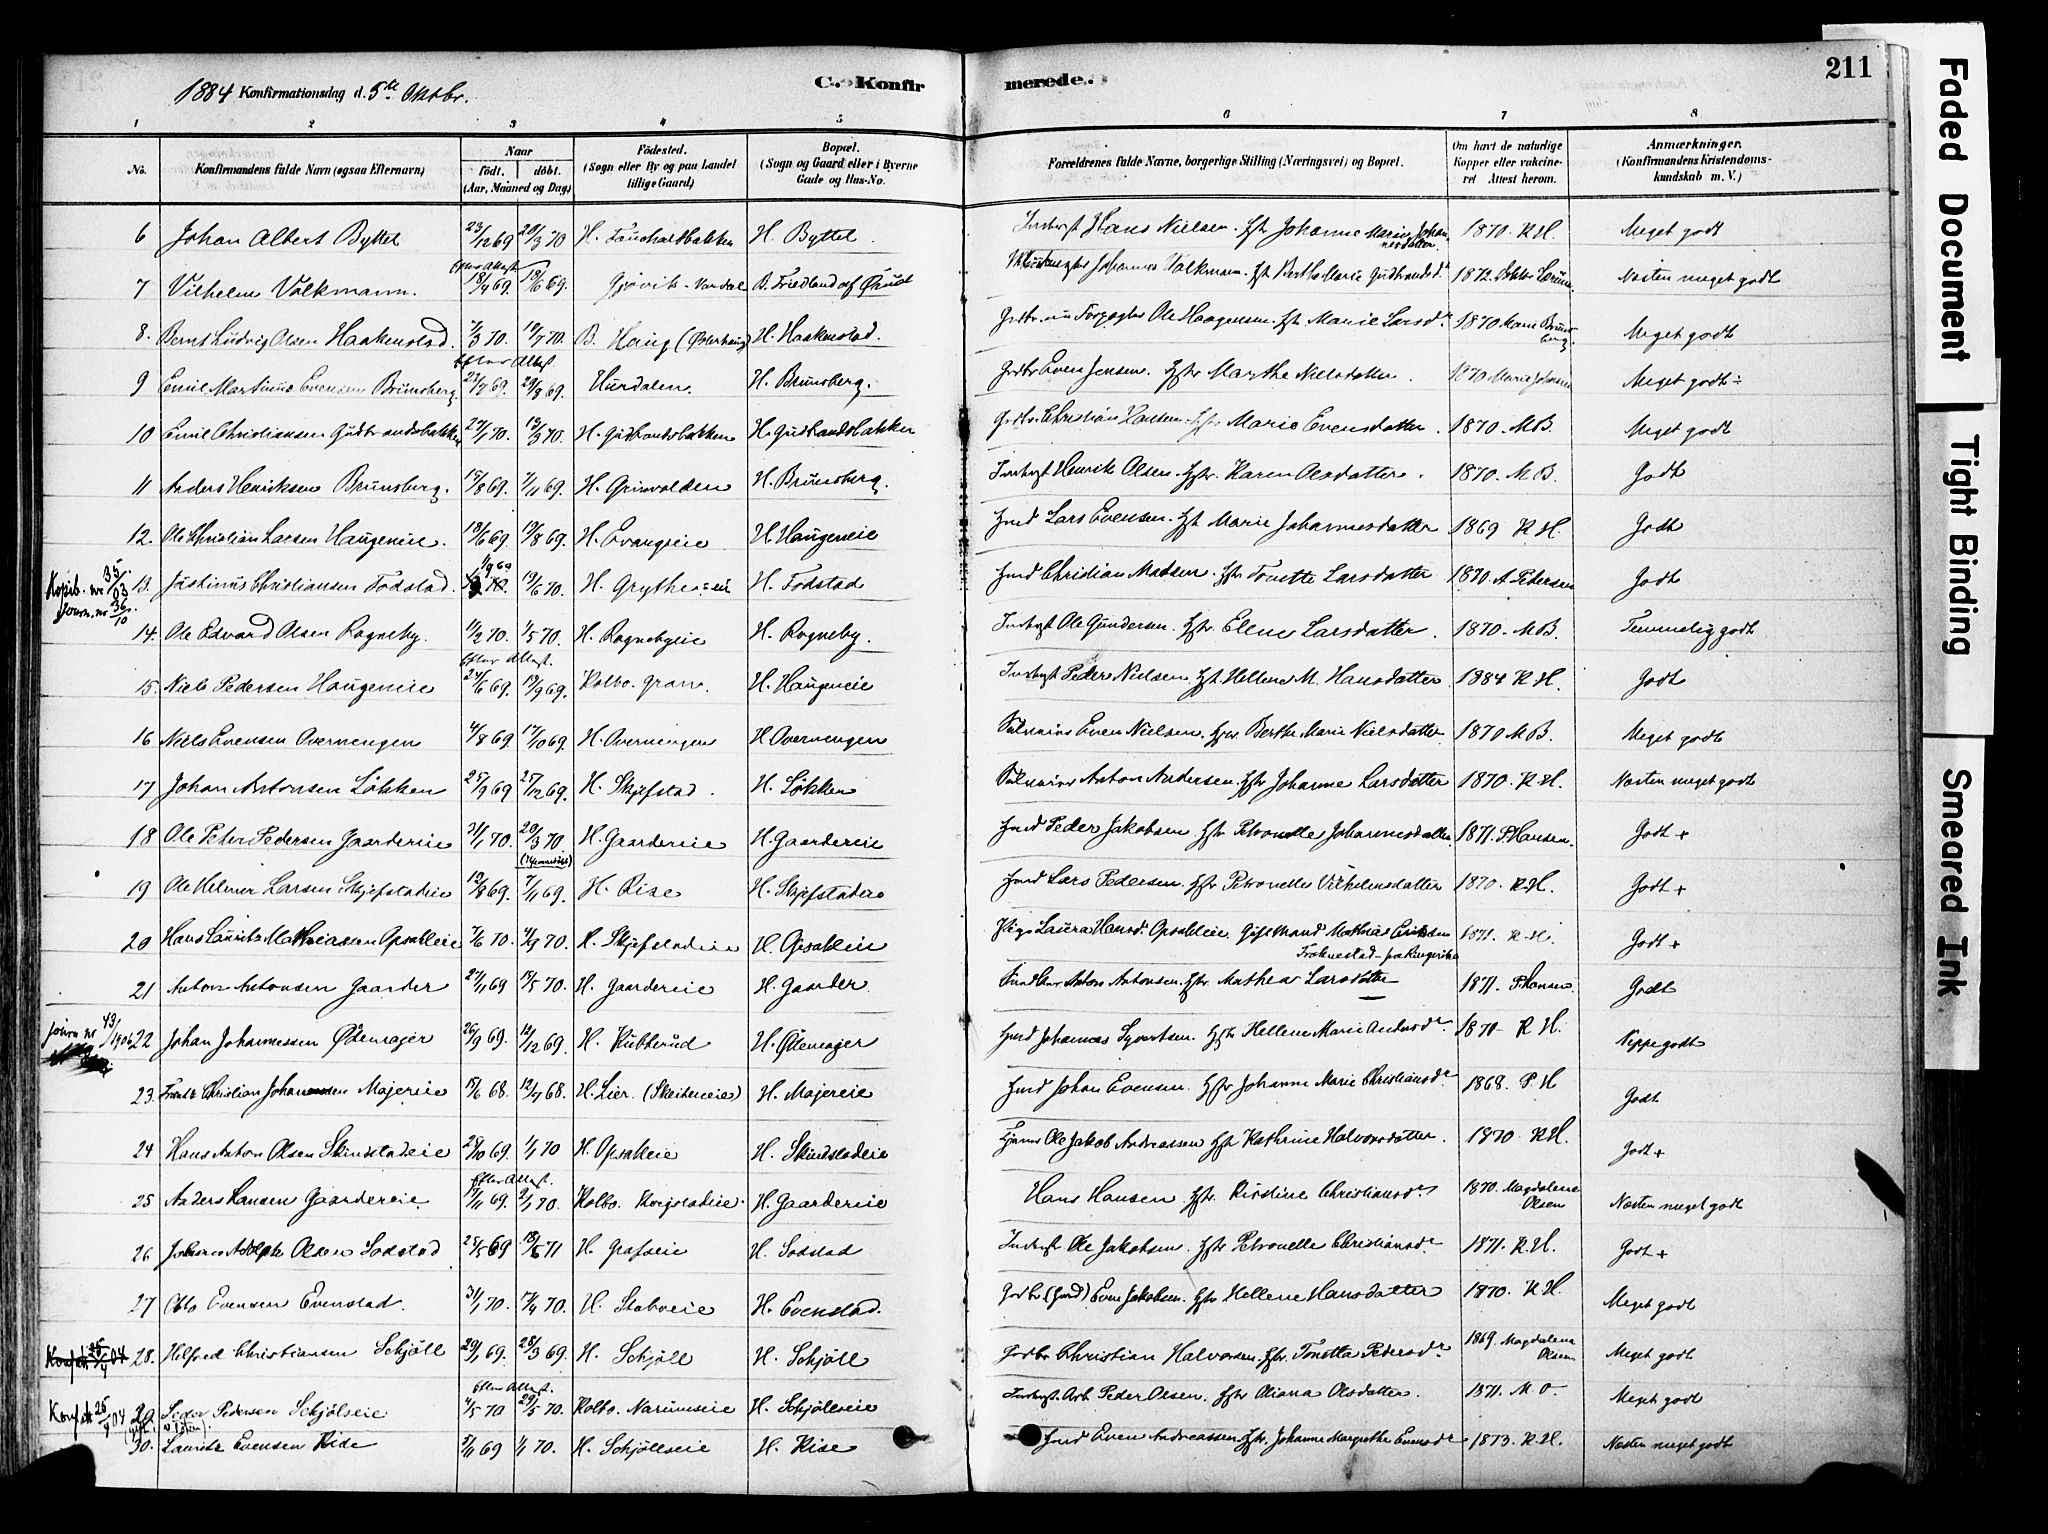 211
1884 Konfirmationsdag d. 5te Oktbr. C. Konfirmerede.
1 2 3 4 5 6 7 8
No. Konfirmandens fulde Navn (ogsaa Efternavn) Naar födt. döbt. (Aar, Maaned og Dag) Födested. (Sogn eller By og paa Landet tillige Gaard) Bopæl. (Sogn og Gaard eller i Byerne Gade og Hus-No. Forældrenes fulde Navne, borgerlige Stilling (Næringsvei) og Bopæl. Om havt de naturlige Kopper eller vakcineret Attest herom. Anmærkninger. (Konfirmandens Kristendomskundskab m. V.)
6 Johan Albert Byttet 23/12 69 20/3 70 H. H. Byttet. Hans Nielsen. Hst Johanne Marie Johannesdatter. 1870. K H. Meget godt
Efter Attest
7 Vilhelm Volkmann. 18/4 69. 18/6 69. Gjövik - Vardal B. Friedland af Johannes Volkmann. Hst Berthe Marie Gudbrandsdr 1872. Næsten meget godt
8. Bernt Ludvig Olsen Haakenstad. 7/3 70. 17/7 70. B. Haug (Østerhaug) H. Haakenstad. Ole Haagensen. Hst. Marie Larsdr 1870 Meget godt
Efter Attest
9 Emil Martinus Evensen Brünsberg 23/7 69. 29/8 69. Hurdalen. H. Brünsberg. Even Jensen. Hst. Marthe Nielsdatter. 1870 Marie Johnsen Meget godt ÷
10 Emil Christiansen Gudbrandsbakken 27/1 70. 13/3 70. H. Gudbrandsbakken H. Gudbrandsbakken Christian Hansen. Hst Marie Evensdatter. 1870. M B. Meget godt
11 Anders Henriksen Brünsberg. 15/8 69. 7/11 69. H. Grinvolden H. Brünsberg. Henrik Olsen. Hst. Karen Olsdatter. 1870. M B. Godt
12. Ole Christian Larsen Haugeneie. 18/6 69. 19/8 69. H. Evangseie H. Haugeneie Hmd Lars Evensen. Hst Marie Johannesdatter 1869 K H. Godt
13. Justinus Christiansen Todstad. 1/9 69 19/6 70. H. Grythe=eie H. Todstad Hmd Christian Madsen. Hst. Tonette Larsdatter 1870. A. Pedersen Godt
14. Ole Edvard Olsen Rogneby. 11/2 70. 1/5 70. H. Rognebyeie H. Rogneby. Ole Gundersen. Hst. Elene Larsdatter. 1870. M B. Temmelig godt
Efter Attest.
15. Niels Pedersen Haugeneie 27/6 69. 19/9 69. Kolbo. Gran. H. Haugeneie Peder Nielsen. Hst. Hellene M. Hansdatter 1884 K H. Godt
16 Niels Evensen Overnengen 4/8 69. 17/10 69. H. Overnengen H. Overnengen Even Nielsen. Hst Berthe Marie Nielsdatter 1870 M B. Meget godt
17 Johan Antonsen Lökken 25/9 69 25/12 69. H. Skjefstad. H. Lökken Anton Andersen. Hst. Johanne Larsdatter 1870. K H. Næsten meget godt
18 Ole Peter Pedersen Gaardereie 31/1 70. 20/3 70 H. Gaardereie H. Gaardereie Hmd Peder Jakobsen. Hst Petronelle Johannesdatter 1871. P. Hansen. Godt +
19 Ole Helmer Larsen Skjefstadeie 19/8 69. 7/11 69. H. Rise H. Skjefstadeie Hmd Lars Pedersen. Hst Petronelle Vilhelmsdatter 1870. K. H. Godt +
20 Hans Lauritz Mathiassen Opsakleie 7/6 70. 4/9 70. H. Skjefstadeie H. Opsakleie Pige Laura Hansd. Opsakleie. Gift Mand Mathias Eriksen Troknestad - paa Ringerike 1871. K H. Godt +
21 Anton Antonsen Gaarder 27/11 69 15/5 70. H. Gaardereie H. Gaarder. Anton Antonsen. Hst. Mathea Larsdatter 1871. P Hansen. Godt
Journ nr 43/1906 22 Johan Johannessen Ødenrajer 26/9 69. 12/12 69. H. Kubberud H. Ødenrajer Hmd Johannes Syvertsen. Hst Hellene Marie Andersdr. 1870- K H. Neppe godt
23. Frantz Christian Johannessen Majereie 15/6 68. 12/7 68. H. Lier. (Skeiteneie) H. Majereie Hmd Johan Evensen. Hst Johanne Marie Christiansdr. 1868. P. H Godt
24 Hans Anton Olsen Skindstadeie 28/10 69. 1/1 70 H. Opsakleie H. Skindstadeie Ole Jakob Andreassen Hst Kathrine Halvorsdatter. 1870. K H. Godt +
Efter Attest.
25 Anders Hansen Gaardereie. 17/11 69. 2/1 70. Kolbo. H. Gaardereie Hans Hansen. Hst. Kirstine Christiansdr. 1870. Magdalene Olsen Næsten meget godt
26 Adolph Olsen Sodstad 25/5 69 H. Grafseie H. Sodstad Ole Jakobsen. Hst Petronelle Christiansdr. 1871. K. H. Godt +
27 Otto Evensen Evenstad. 31/1 70. 17/4 70. H. Stabveie H. Evenstad. Gdbr. (Hmd) Even Jakobsen. Hst Hellene Hansdatter 1870. K H. Meget godt
28. Hilfred Christiansen Schjöll 20/1 69. 28/3 69. H. Schjöll H. Schjöll Christian Halvorsen. Hst. Tonetta Pedersdr. 1869. Magdalena Olsen Meget godt
Efter Attest.
29 Peder Pedersen Schjölseie 4/5 70 29/5 70. Kolbo. Narumseie H. Schjölleie Arb. Peder Olsen. Hst Oliana Olsdatter. 1871. M. O. Meget godt
30. Lauritz Evensen Rise 5/11 69 1/1 70. H. Schjöllseie H. Rise Hmd Even Andreassen. Hst. Johanne Margrethe Evensdr 1873. K. H. Næsten meget godt
Faded Document
Tight Binding
Smeared Ink